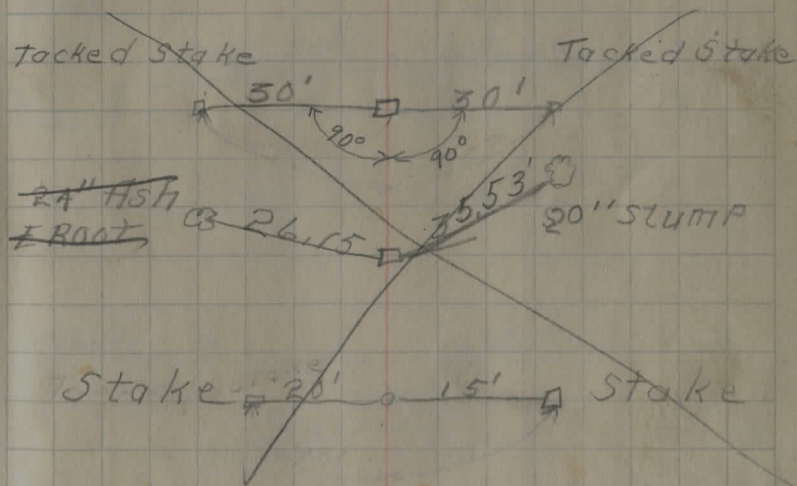 Tacked Stake
Tacked Stake
30' 30'
90° 90°
24" Ash
E ROOT
26.15
35.53'
20" Stump
Stake 20' 15' Stake